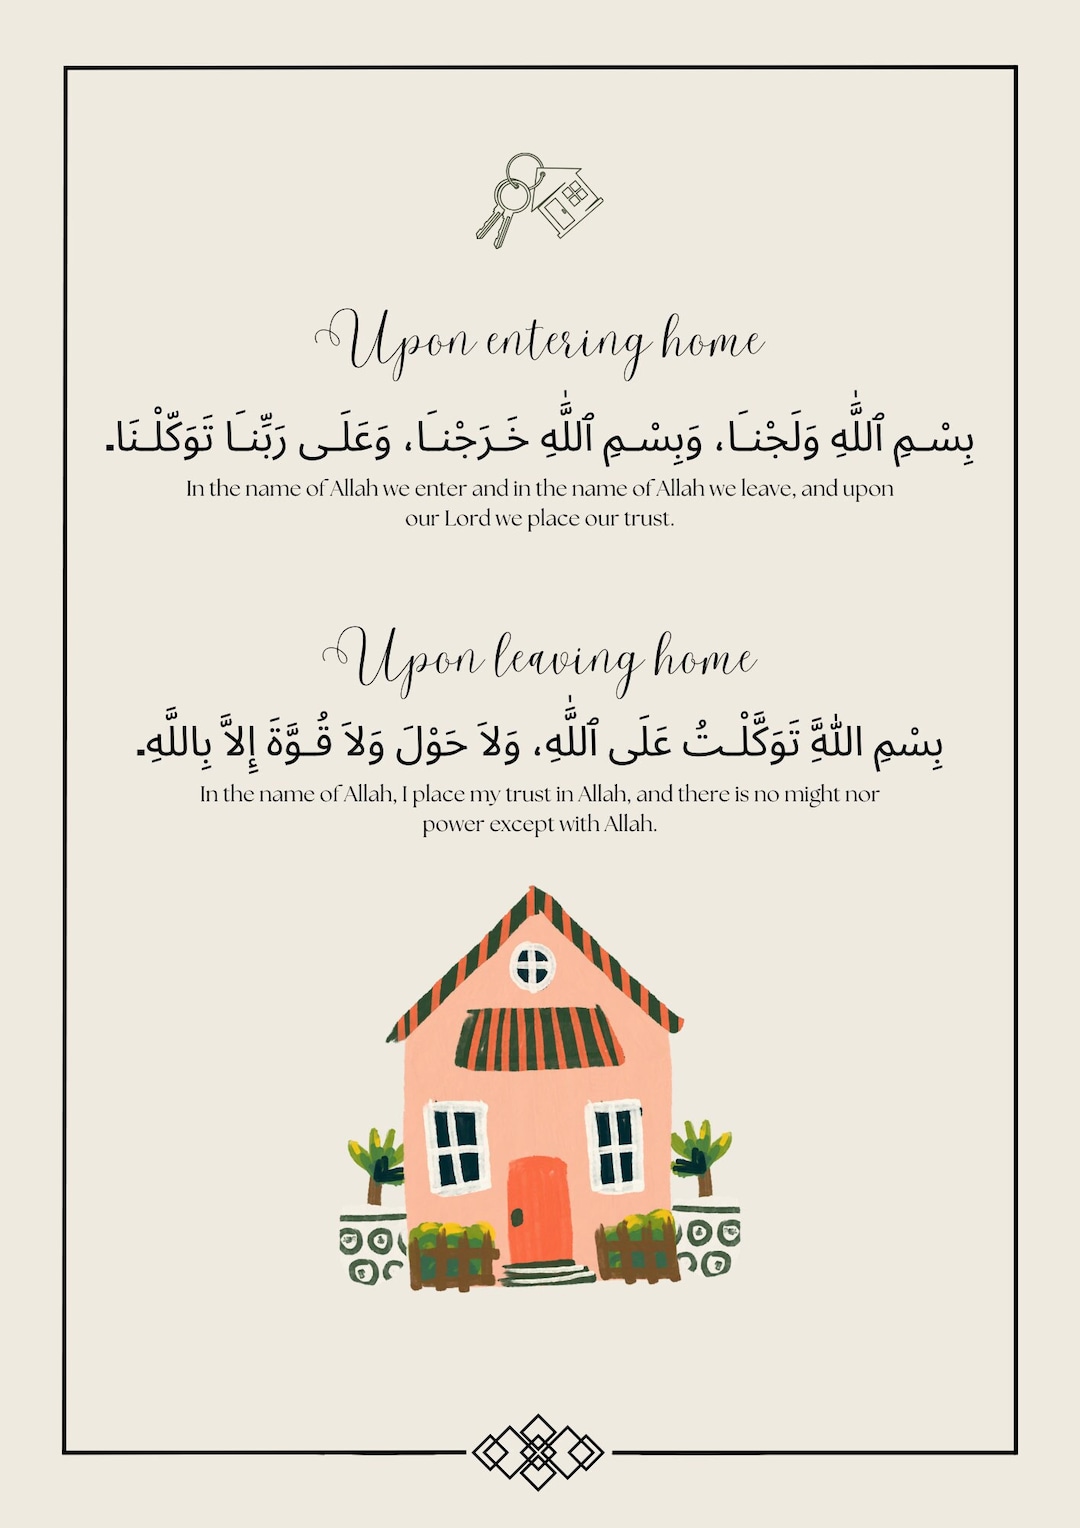 Upon entering home
بِسْـمِ ٱللَّٰهِ وَلَجْنـَا، وَبِسْـمِ ٱللَّٰهِ خَـرَجْنـَا، وَعَلَـى رَبِّنـَا تَوَكّلْـنَا.
In the name of Allah we enter and in the name of Allah we leave, and upon
our Lord we place our trust.
Upon leaving home
بِسْمِ اللهَِّ تَوَكَّلْـتُ عَلَى ٱللَّٰهِ، وَلاَ حَوْلَ وَلاَ قُـوَّةَ إِلاَّ بِاللَّهِ.
In the name of Allah, I place my trust in Allah, and there is no might nor
power except with Allah.